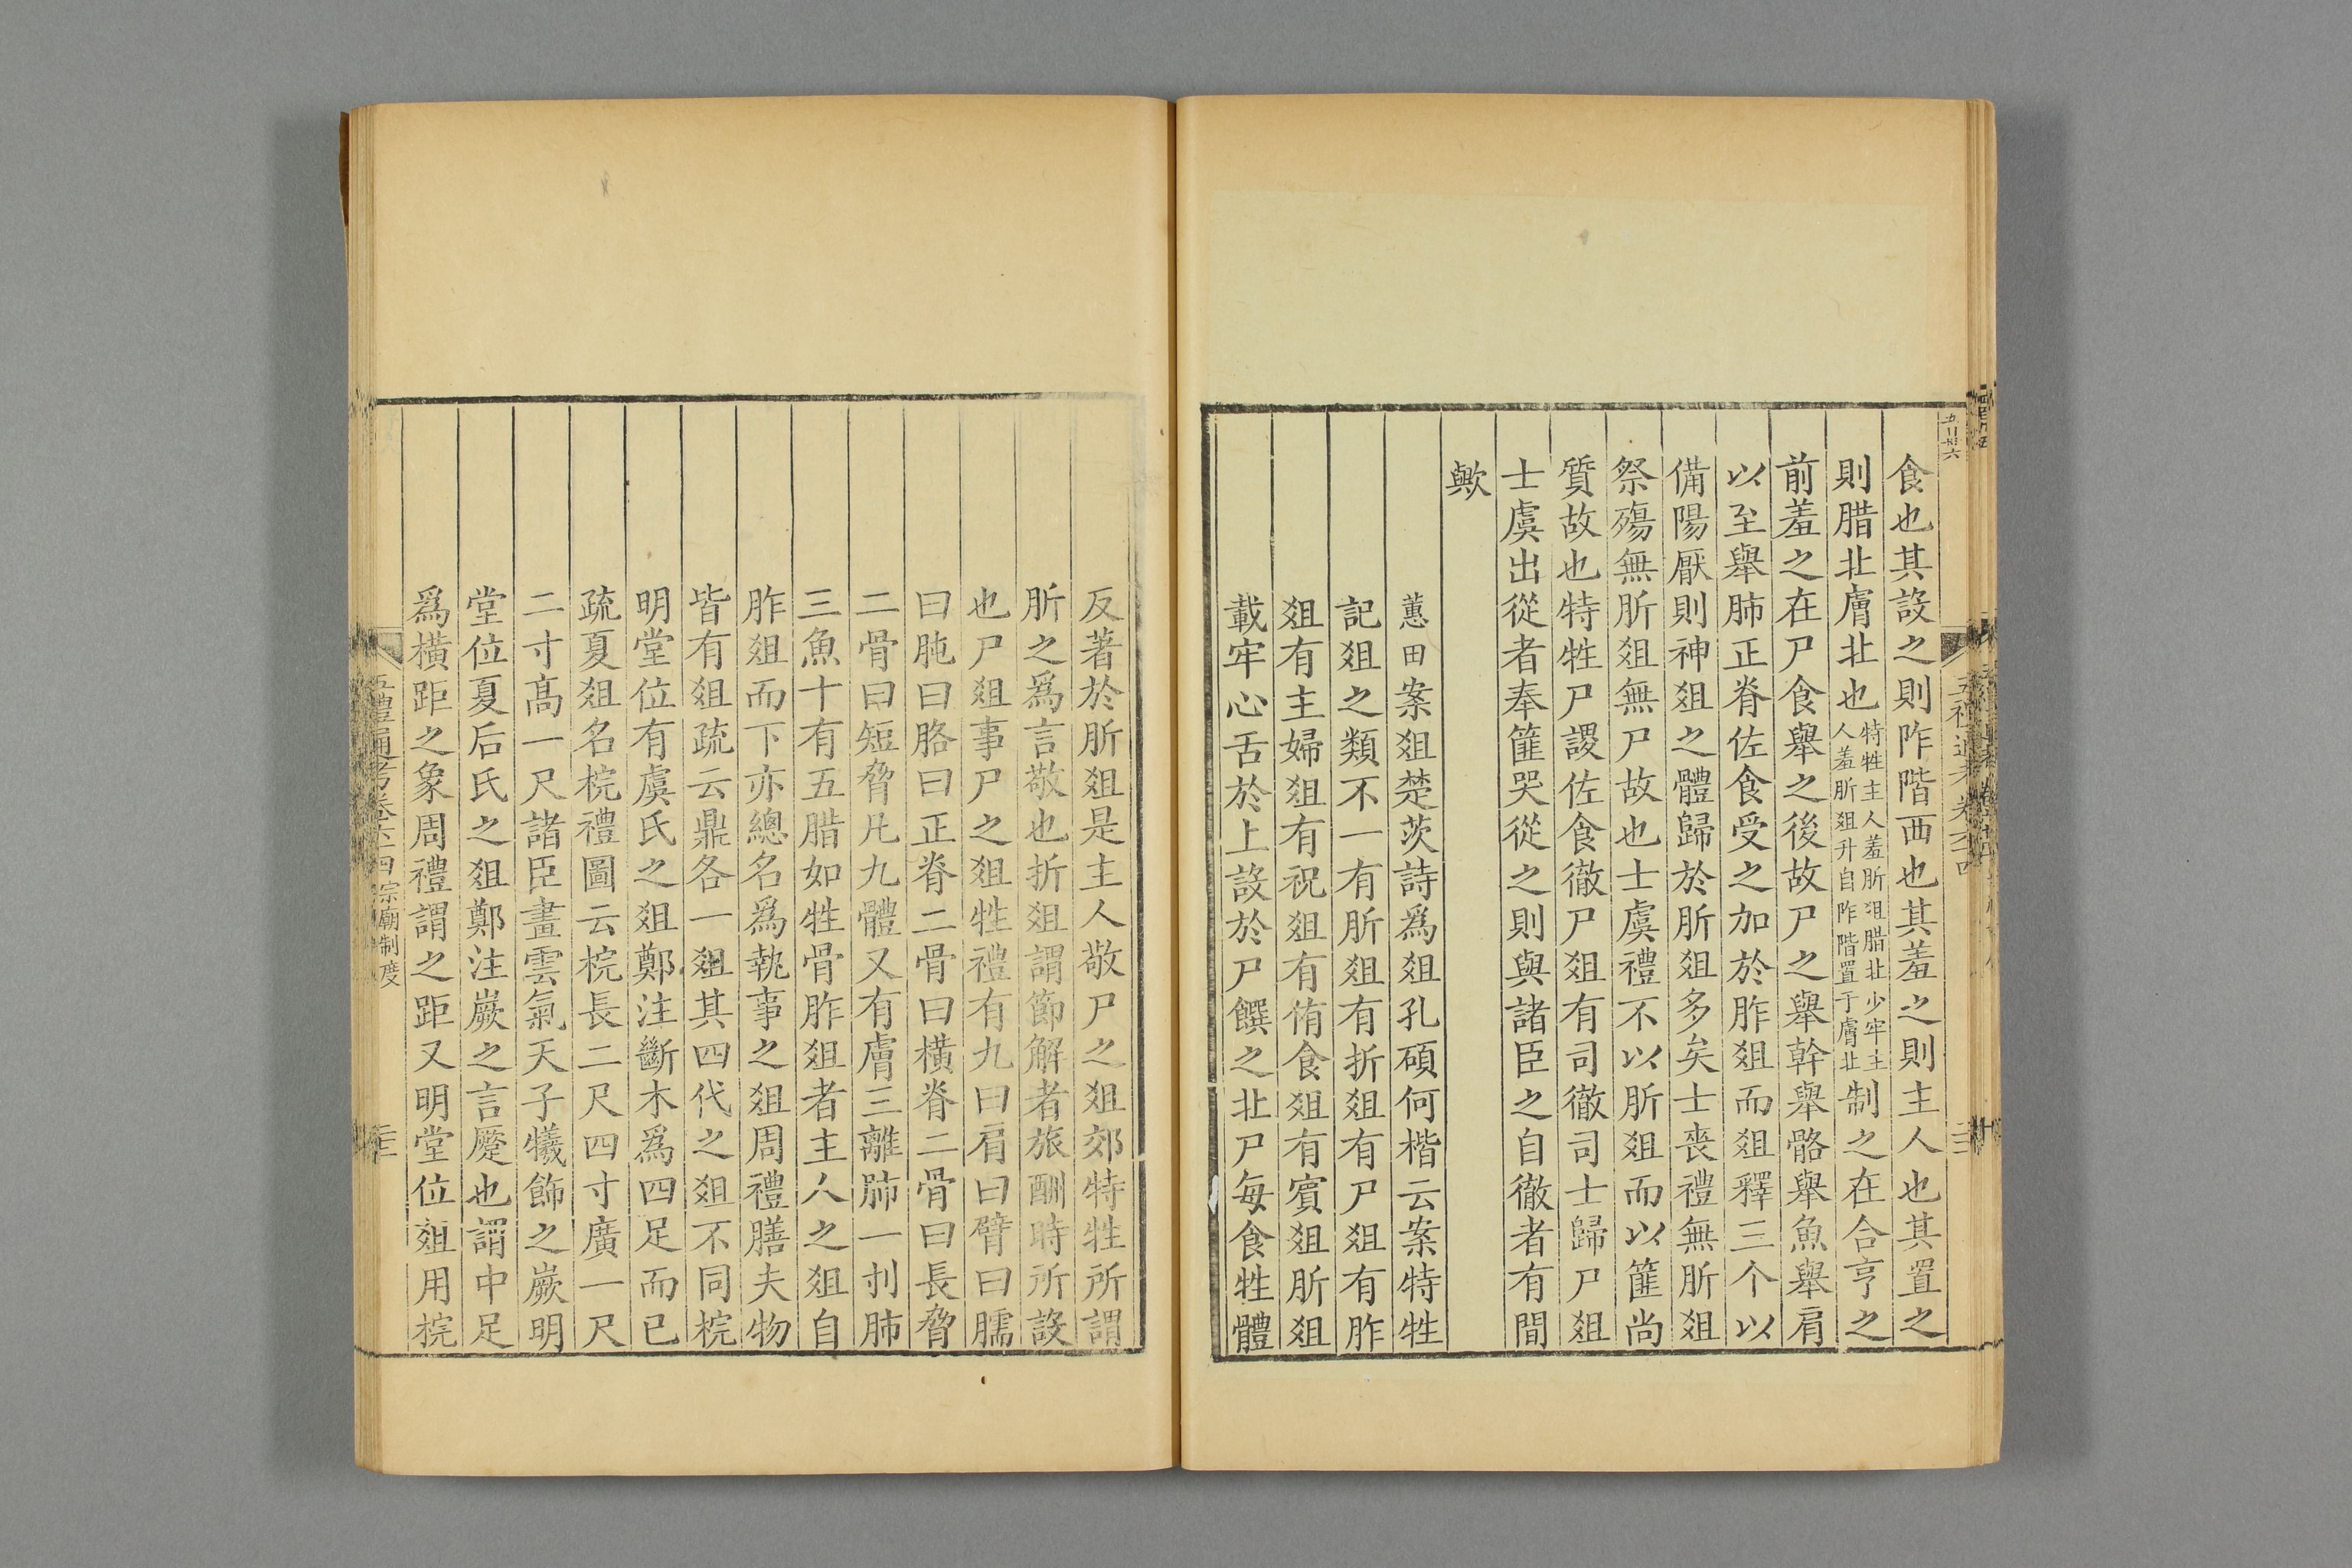 食也其設之則阼階西也其羞之則主人也其置之
則腊北膚北也特牲主人羞肵俎腊北少牢主人羞肵俎升自阼階置于膚北制之在合亨之
前羞之在尸食舉之後故尸之舉幹舉骼舉魚舉肩
以至舉肺正脊佐食受之加於胙俎而俎釋三个以
備陽厭則神俎之體歸於肵俎多矣士喪禮無肵俎
祭殤無肵俎無尸故也士虞禮不以肵俎而以篚尚
質故也特牲尸謖佐食徹尸俎有司徹司士歸尸俎
士虞出從者奉篚哭從之則與諸臣之自徹者有間
歟
蕙田案俎楚茨詩爲俎孔碩何楷云案特牲
記俎之類不一有肵俎有折俎有尸俎有胙
俎有主婦俎有祝俎有侑食俎有賓俎肵俎
載牢心舌於上設於尸饌之北尸每食牲體
反著於肵俎是主人敬尸之俎郊特牲所謂
肵之爲言敬也折俎謂節解者旅酬時所設
也尸俎事尸之俎牲禮有九曰肩曰臂曰臑
曰肫曰胳曰正脊二骨曰橫脊二骨曰長脅
二骨曰短脅凡九體又有膚三離肺一刌肺
三魚十有五腊如牲骨胙俎者主人之俎自
胙俎而下亦總名爲執事之俎周禮膳夫物
皆有俎疏云鼎各一俎其四代之俎不同梡
明堂位有虞氏之俎鄭注斷木爲四足而已
疏夏俎名梡禮圖云梡長二尺四寸廣一尺
二寸高一尺諸臣畫雲氣天子犧飾之嶡明
堂位夏后氏之俎鄭注嶡之言蹷也謂中足
爲橫距之象周禮謂之距又明堂位俎用梡
五禮通考卷六十四 宗廟制度